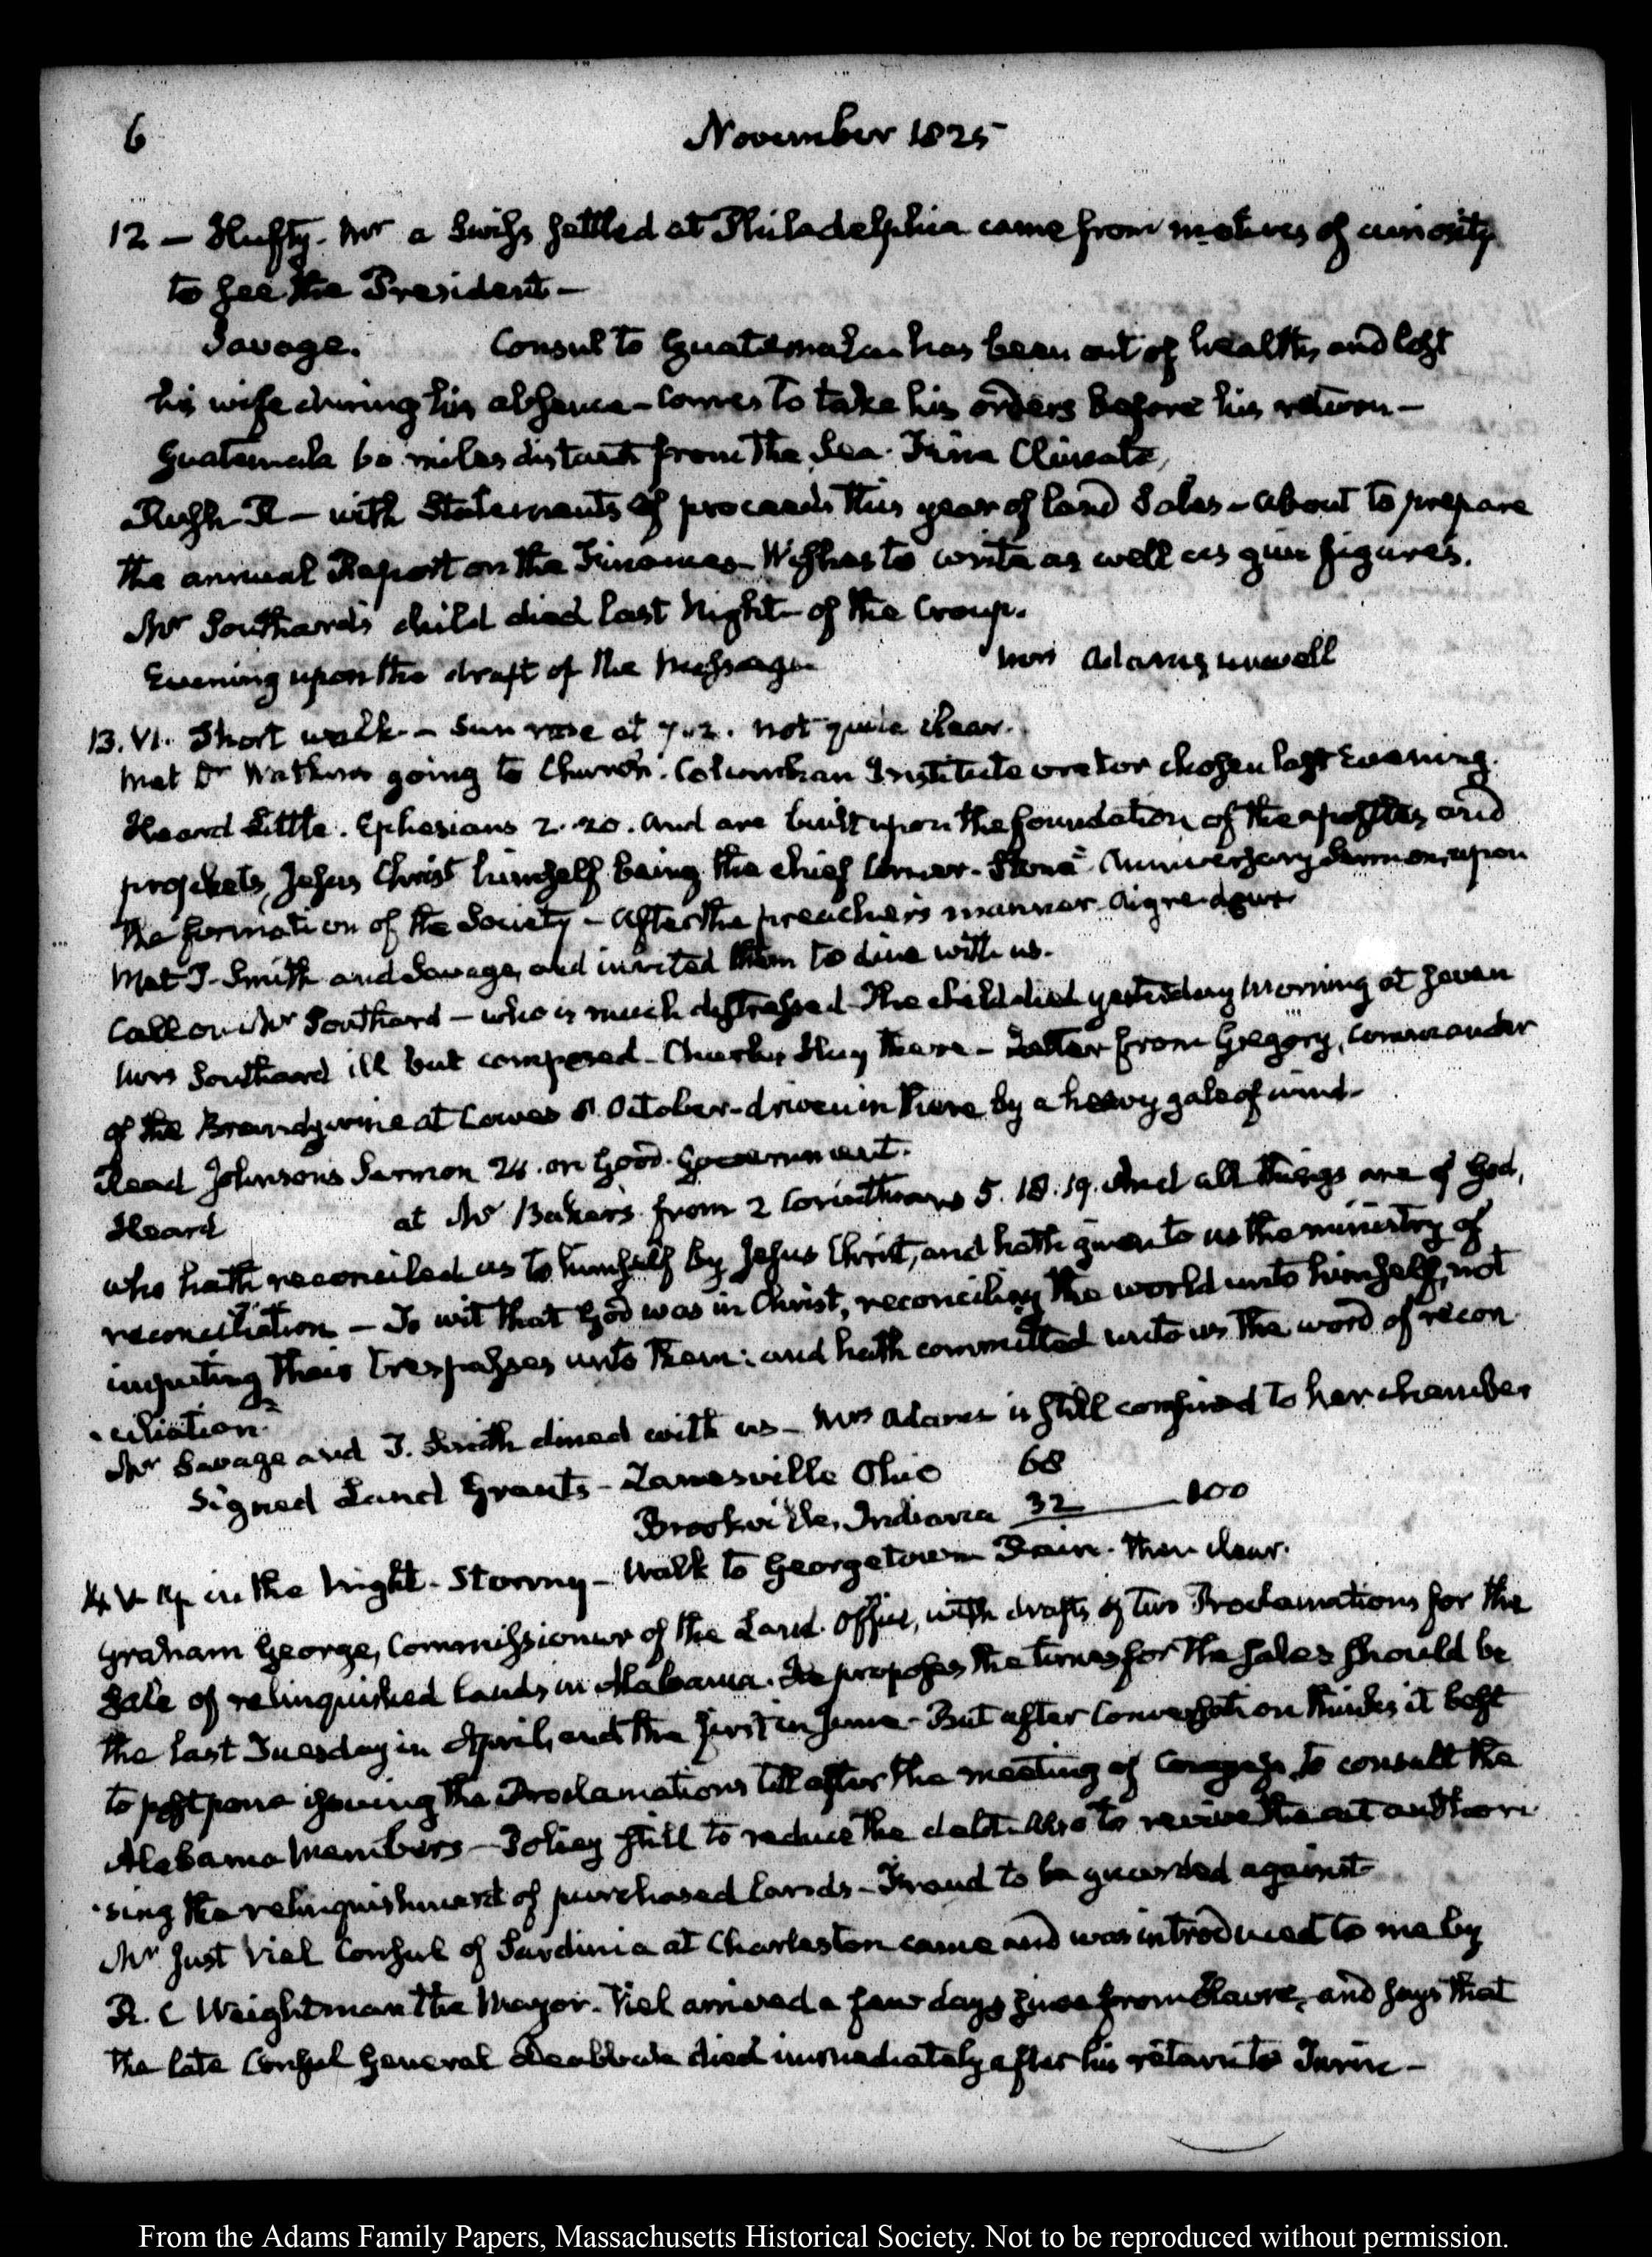 6
November 1825
12 — Hufty. Mr a Swiss settled at Philadelphia came from motives of curiosity
to see the President —
Savage. Consul to Guatemala has been out of health, and lost
his wife during his absence — Comes to take his orders before his return —
Guatemala 60 miles distant from the Sea. Fine Climate,
Rush R — with Statements of proceeds this year of land Sales — about to prepare
the annual Report on the Finances — Wishes to write as well as give figures.
Mr Southard's child died last Night — of the Croup.
Evening upon the draft of the Message Mrs Adams unwell
13. VI. Short walk — Sun rose at 7..2. not quite clear.
Met Dr Watkins going to Church. Columbian Institute orator chosen last Evening.
Heard Little. Ephesians 2. 20. And are built upon the foundation of the apostles and
prophets, Jesus Christ himself being the chief corner-stone. Anniversary Sermon, upon
the formation of the Society — After the preacher's manner aigre-doux
Met J. Smith and Savage, and invited them to dine with us.
Call on Mr Southard — who is much distressed — The child died yesterday Morning at seven
Mrs Southard ill but composed — Charles Hay there — Letter from Gregory, Commander
of the Brandywine at Cowes October — driven in there by a heavy gale of wind —
Read Johnson's Sermon 24. on Good Government.
Heard at Mr Baker's from 2 Corinthians 5. 18. 19. And all things are of God,
who hath reconciled us to himself by Jesus Christ, and hath given to us the ministry of
reconciliation — To wit that God was in Christ, reconciling the world unto himself, not
imputing their trespasses unto them; and hath committed unto us the word of recon
ciliation.
Mr Savage and J. Smith dined with us — Mrs Adams is still confined to her chamber
Signed Land Grants — Zanesville Ohio 68
Brookville, Indiana 32 — 100
14. V. Up in the Night — Stormy — Walk to Georgetown Rain. then clear.
Graham George, Commissioner of the Land Office, with drafts of two Proclamations for the
sale of relinquished lands in Alabama. He proposes the times for the sales should be
the last Tuesday in April, and the first in June — But after Conversation thinks it best
to postpone issuing the Proclamations till after the meeting of Congress, to consult the
Alabama Members — Policy still to reduce the debt — Also to revive the act authori
sing the relinquishment of purchased lands — Fraud to be guarded against
Mr Just Viel Consul of Sardinia at Charleston came and was introduced to me by
R. C Weightman the Mayor. Viel arrived a few days since from Havre, and says that
the late Consul General died immediately after his return to Turin —
From the Adams Family Papers, Massachusetts Historical Society. Not to be reproduced without permission.